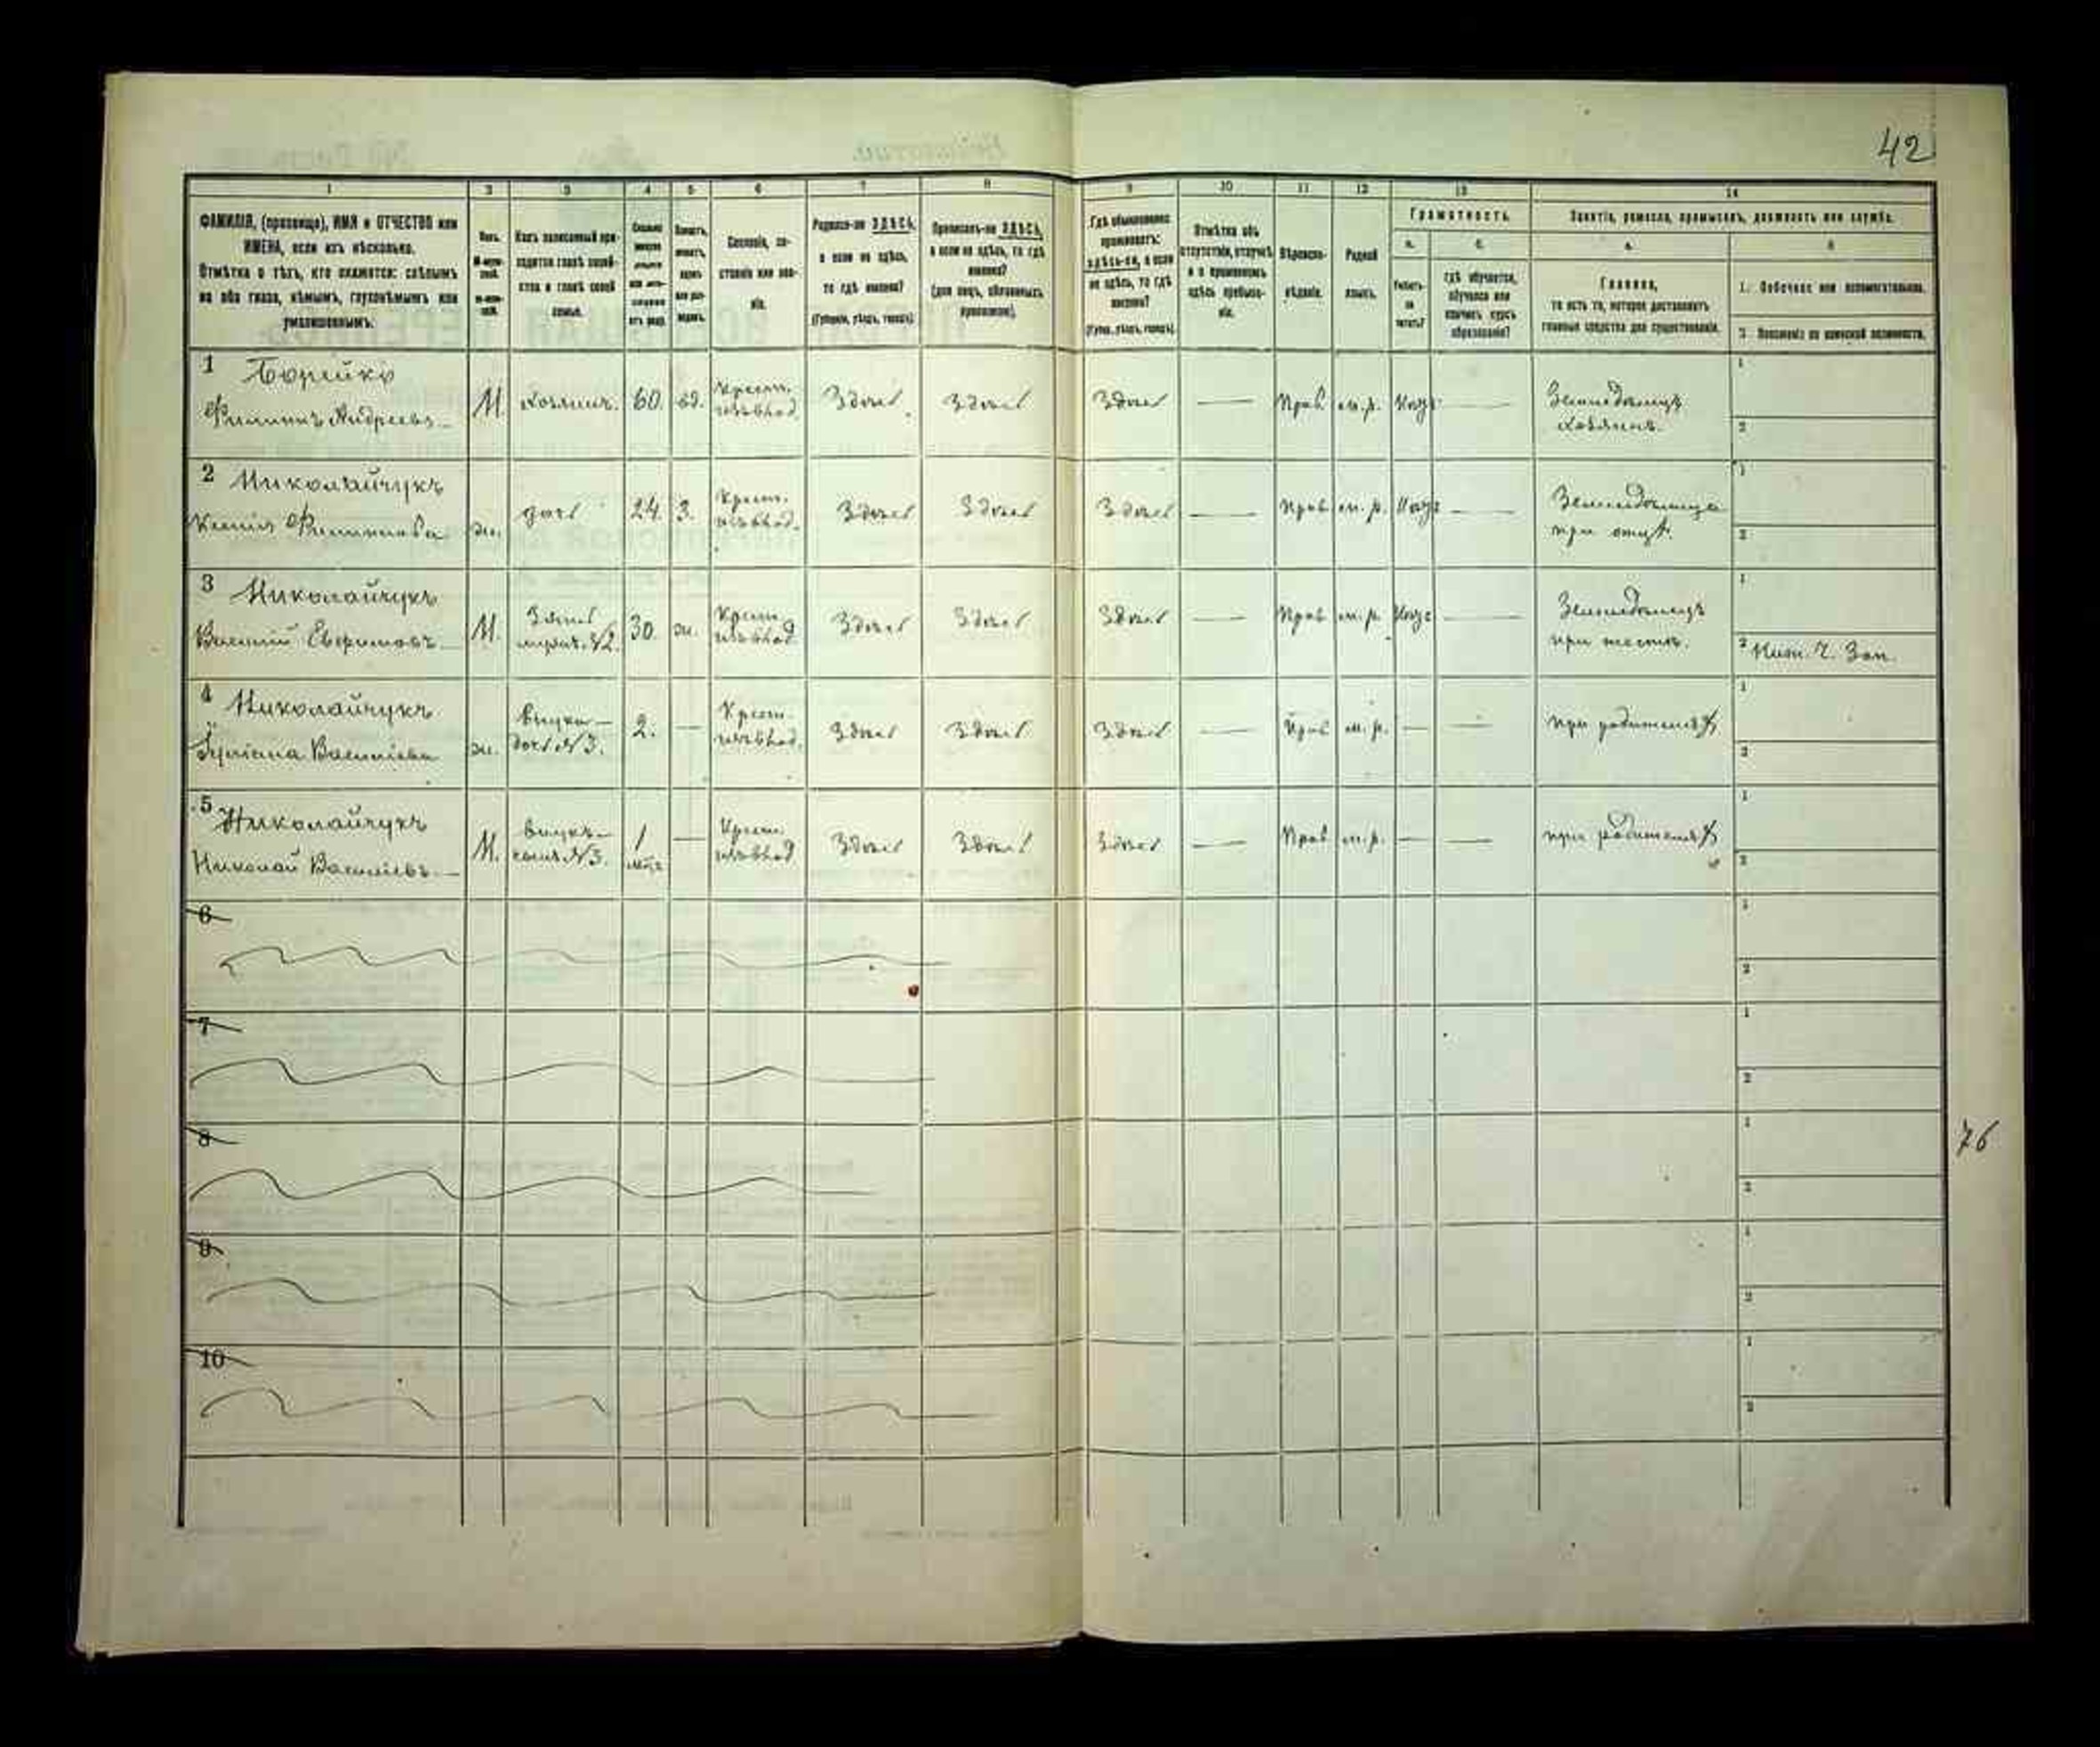 42
1 2 3 4 5 6 7 8 9 10 11 12 13 14
ФАМИЛІЯ, (прозвище), ИМЯ и ОТЧЕСТВО или
ИМЕНА, если ихъ нѣсколько.
Отмѣтка о тѣхъ, кто окажется: слѣпымъ
на оба глаза, нѣмымъ, глухонѣмымъ или
умалишеннымъ.
Полъ.
М-муж-
ской.
Ж-жен-
скій.
Какъ записанный при-
ходится главѣ хозяй-
ства и главѣ своей
семьи.
Сколько
минуло
лѣтъ
или мѣ-
сяцевъ
отъ роду.
Холостъ,
женатъ,
вдовъ
или раз-
веденъ.
Сословіе, со-
стояніе или зва-
ніе.
Родился-ли ЗДѢСЬ,
а если не здѣсь,
то гдѣ именно?
(Губернія, уѣздъ, городъ).
Приписанъ-ли ЗДѢСЬ,
а если не здѣсь, то гдѣ
именно?
(для лицъ, обязанныхъ
припискою).
Гдѣ обыкновенно
проживаетъ:
здѣсь-ли, а если
не здѣсь, то гдѣ
именно?
(Губер., уѣздъ, городъ).
Отмѣтка объ
отсутствіи, отлучкѣ
и о временномъ
здѣсь пребыва-
ніи.
Вѣроиспо-
вѣданіе.
Родной
языкъ.
Грамотность.
а.
Умѣетъ-
ли
читать?
б.
гдѣ обучается,
обучался или
кончилъ курсъ
образованія?
Занятіе, ремесло, промыселъ, должность или служба.
а.
Главное,
то есть то, которое доставляетъ
главныя средства для существованія.
б
1. Побочное или вспомогательное.
2. Положеніе по воинской повинности.
1 Борейко
Филиппъ Андреевъ М. хозяинъ. 60. вд. Крест. изъ влад. Здѣсь Здѣсь Здѣсь — Прав. м.р. Нѣтъ — Земледѣлецъ
хозяинъ.
1
2
2 Николайчукъ
Ксенія Филиппова ж. дочь 24. З. Крест. изъ влад. Здѣсь Здѣсь Здѣсь — Прав. м.р. — Земледѣлица
при отцѣ.
1
2
3 Николайчукъ
Василій Ефимовъ М. Зять
мужъ №2. 30. ж. Крест. изъ влад Здѣсь Здѣсь Здѣсь — Прав м.р. — Земледѣлецъ
при тестѣ.
1
2
4 Николайчукъ
Іуліана Василіева ж. внучка
дочь №3. 2. — Крест. изъ влад. Здѣсь Здѣсь Здѣсь — Прав м.р. — — при родителяхъ
1
2
5 Николайчукъ
Николай Василіевъ М. внукъ
сынъ №3. 1
мѣс. — Крест. изъ влад Здѣсь Здѣсь Здѣсь — Прав м.р. — — при родителяхъ
1
2
6
1
2
7
1
2
8
1
2
76
9
1
2
10
1
2